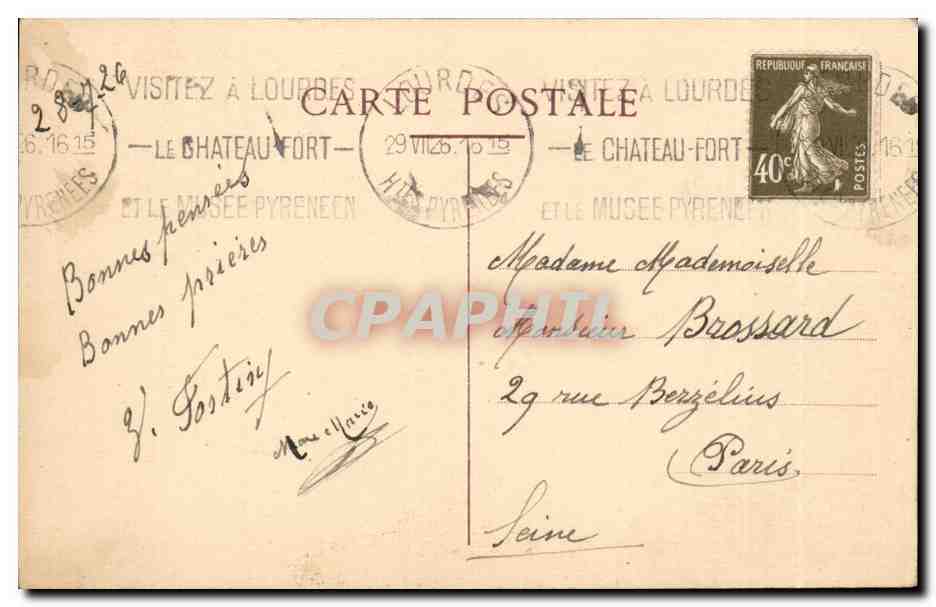 28-7-26
VISITEZ À LOURDES
LE CHATEAU-FORT
ET LE MUSEE PYRENEEN
LOURDES
29 VII 26. 16 15
HTES PYRENEES
VISITEZ À LOURDES
LE CHATEAU-FORT
ET LE MUSEE PYRENEEN
CARTE POSTALE
REPUBLIQUE FRANÇAISE
40c
POSTES
Bonnes pensées
Bonnes prières
Marie
Madame Mademoiselle
Monsieur Brossard
29 rue Berzélius
Paris
Seine
CPAPHIL